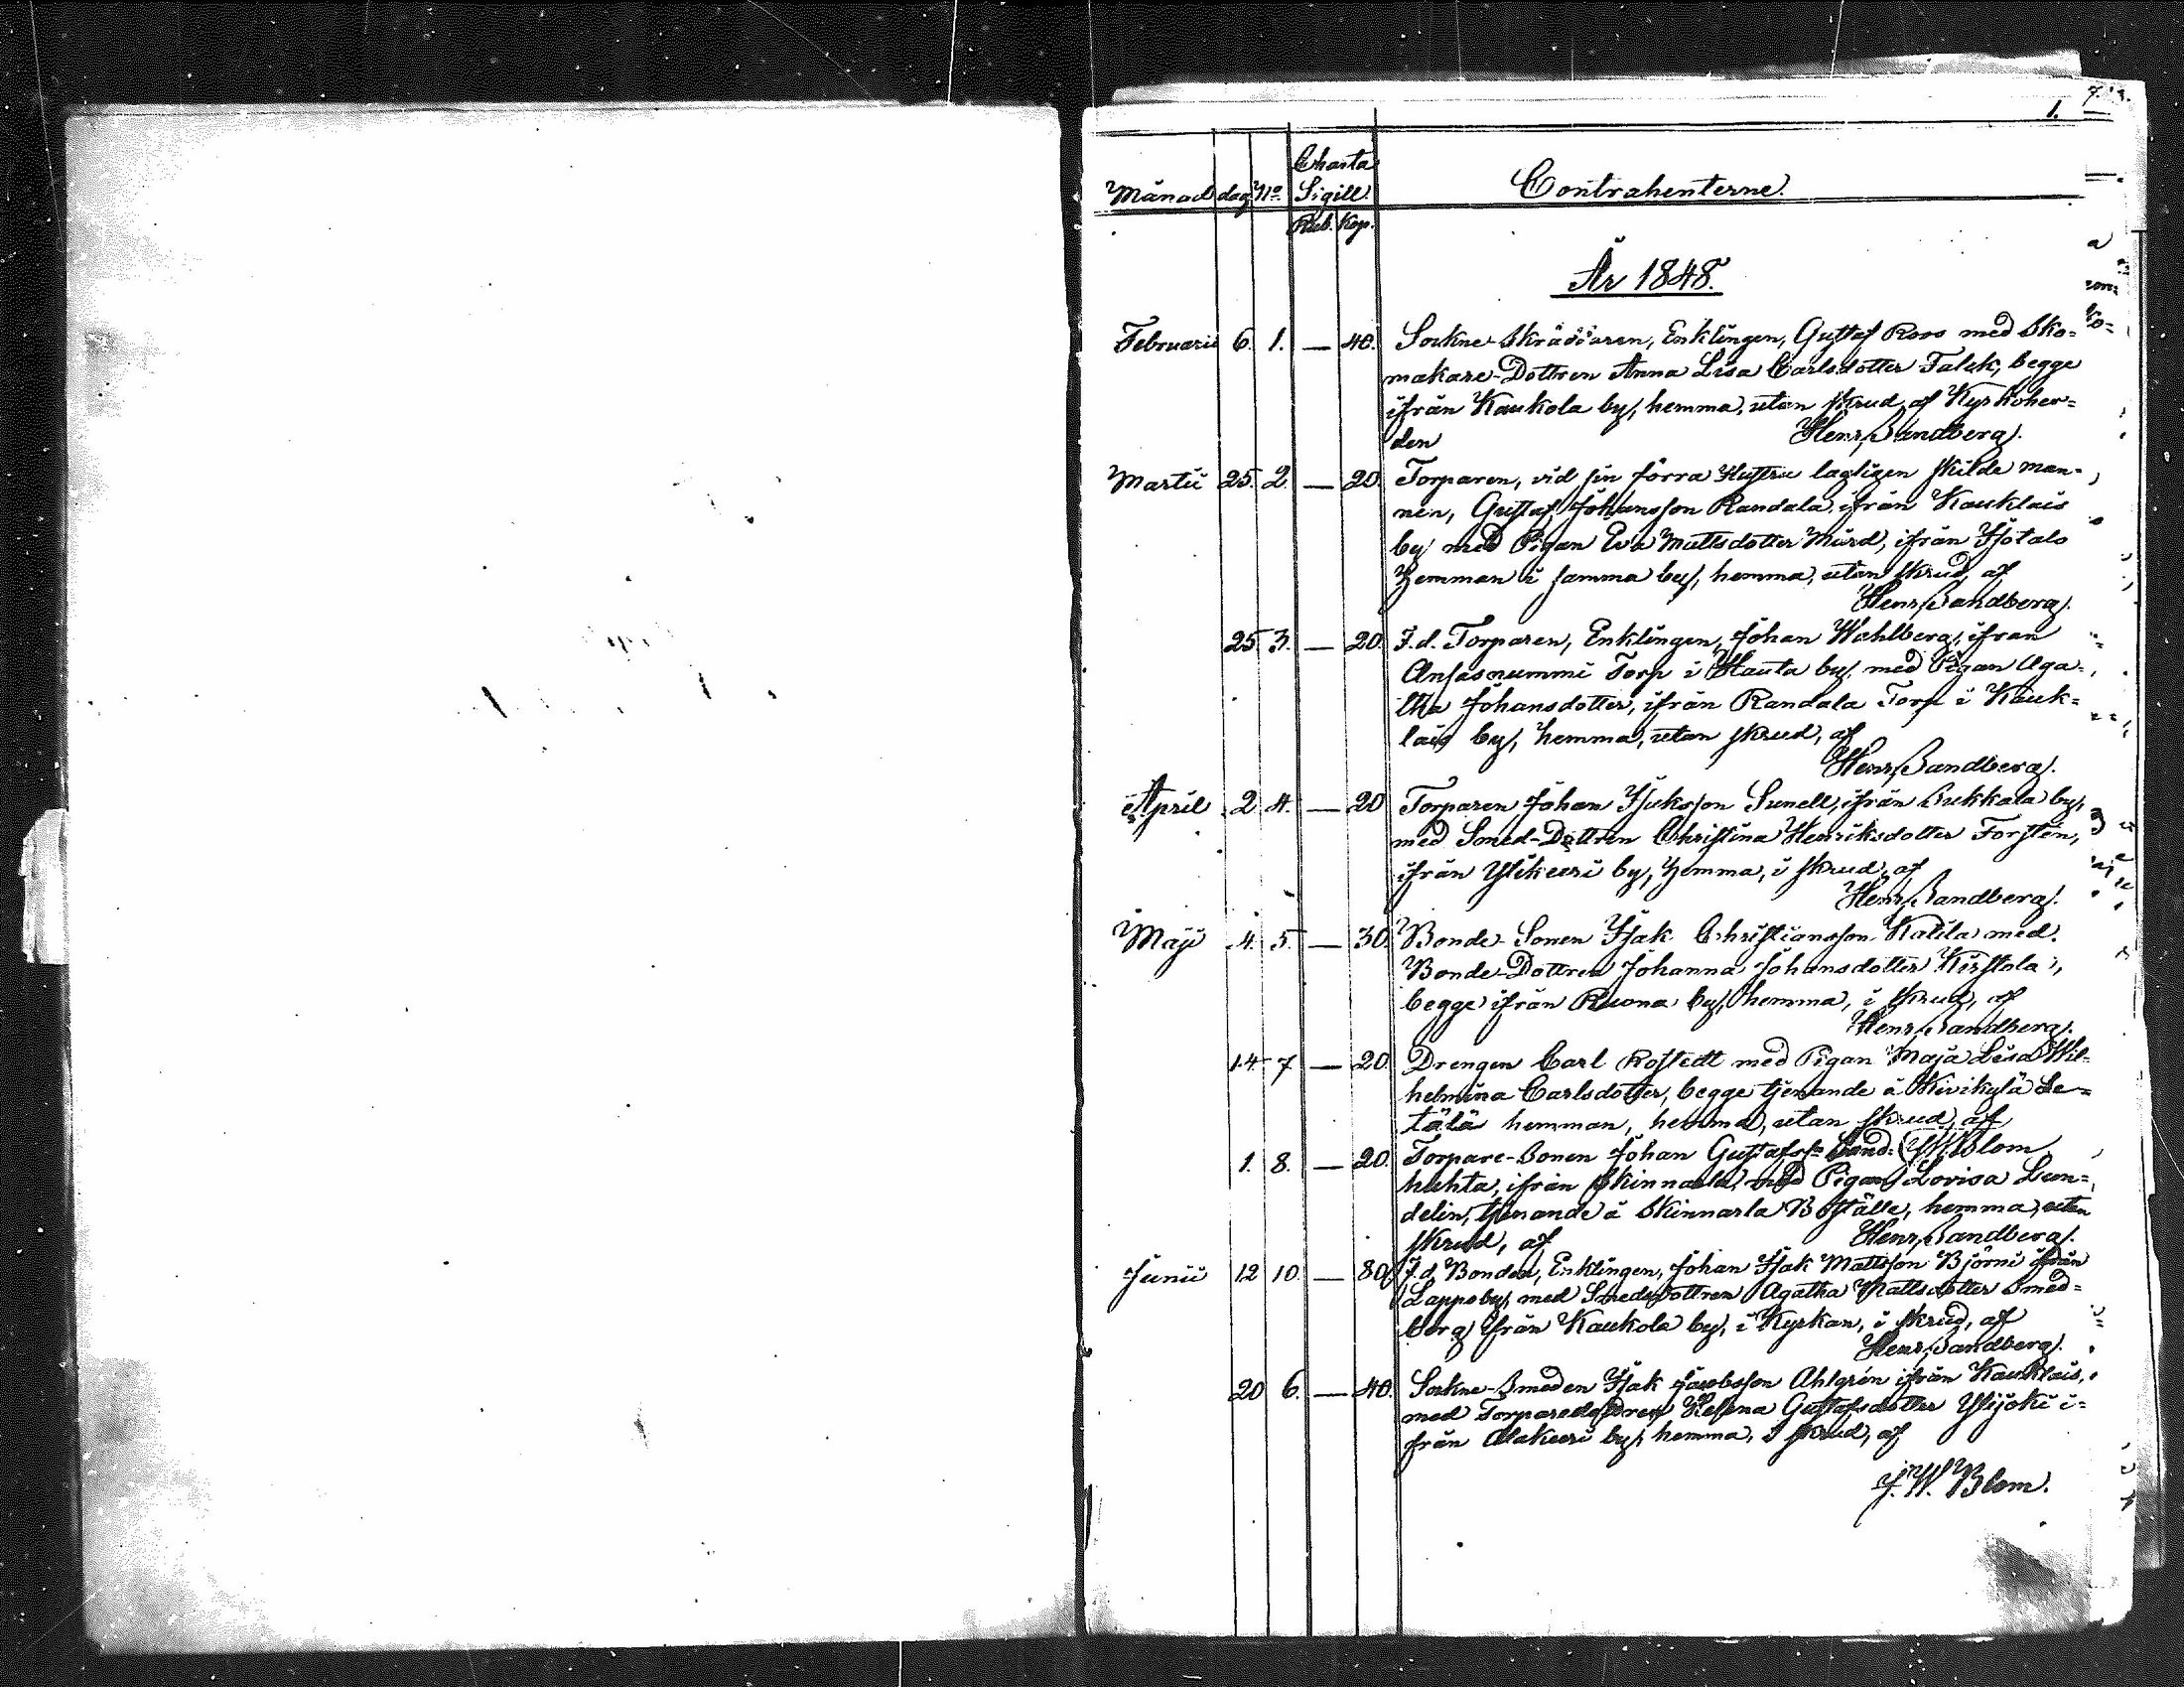 1.
Charta
Månad dag No. Sigill. Contrahenterne.
Rub. Kop.
År 1848.
Februarii 6. 1. — 40. Sockne-Skräddaren, Enklingen, Gustaf Roos med Sko-
makare-Dottren Anna Lisa Carlsdotter Falck, begge
ifrån Kaukola by, hemma, utan skrud, af Kyrkoher-
den Henr. Sandberg.
Martii 25. 2. — 20. Torparen, vid sin förra Hustru lagligen skilde man-
nen, Gustaf Johansson Randala, ifrån Kauklais
by med Pigan Eva Mattsdotter Mård, ifrån Isotalo
Hemman i samma by, hemma, utan skrud, af
Henr. Sandberg.
25. 3. — 20. F.d. Torparen, Enklingen, Johan Wahlberg, ifran
Ansasnummi Torp i Hauta by, med Pigan Aga-
tha Johansdotter, ifrån Randala Torp i Kauk-
lais by, hemma, utan skrud, af
Henr. Sandberg.
April 2. 4. — 20 Torparen Johan Isaksson Sunell, ifrån Sukkala by,
med Smed-Dottren Christina Henriksdotter Forstén,
ifrån Ylikeeri by, hemma, i skrud, af
Henr. Sandberg.
Maji 4. 5. — 30. Bonde-Sonen Isak Christiansson Katila med
Bonde-Dottren Johanna Johansdotter Kirstola,
begge ifrån Ruona by, hemma, i skrud, af
Henr. Sandberg.
14 7 — 20. Drengen Carl Rostedt med Pigan Maja Lisa Wil-
helmina Carlsdotter, begge tjenande å Kirikylä Se-
tälä hemman, hemma, utan skrud, af
1. 8. — 20. Torpare-Sonen Johan Gustafss: Sand- J.W. Blom
huhta, ifrån Skinnarla, med Pigan Lovisa Lun-
delin, tjenande å Skinnarla Boställe, hemma, utan
skrud, af Henr. Sandberg.
Junii 12 10. — 80. F.d. Bonden, Enklingen, Johan Isak Mattsson Björni ifrån
Lappo by, med Smedsdottren Agatha Mattsdotter Smed-
berg ifrån Kaukola by, i Kyrkan, i skrud, af
Henr. Sandberg.
20 6. — 40. Sockne-Smeden Isak Jacobsson Ahlgrén ifrån Kauklais,
med Torparedottren Helena Gustafsdotter Ylijoki i-
från Alakeeri by, hemma, i skrud, af
J. W. Blom.